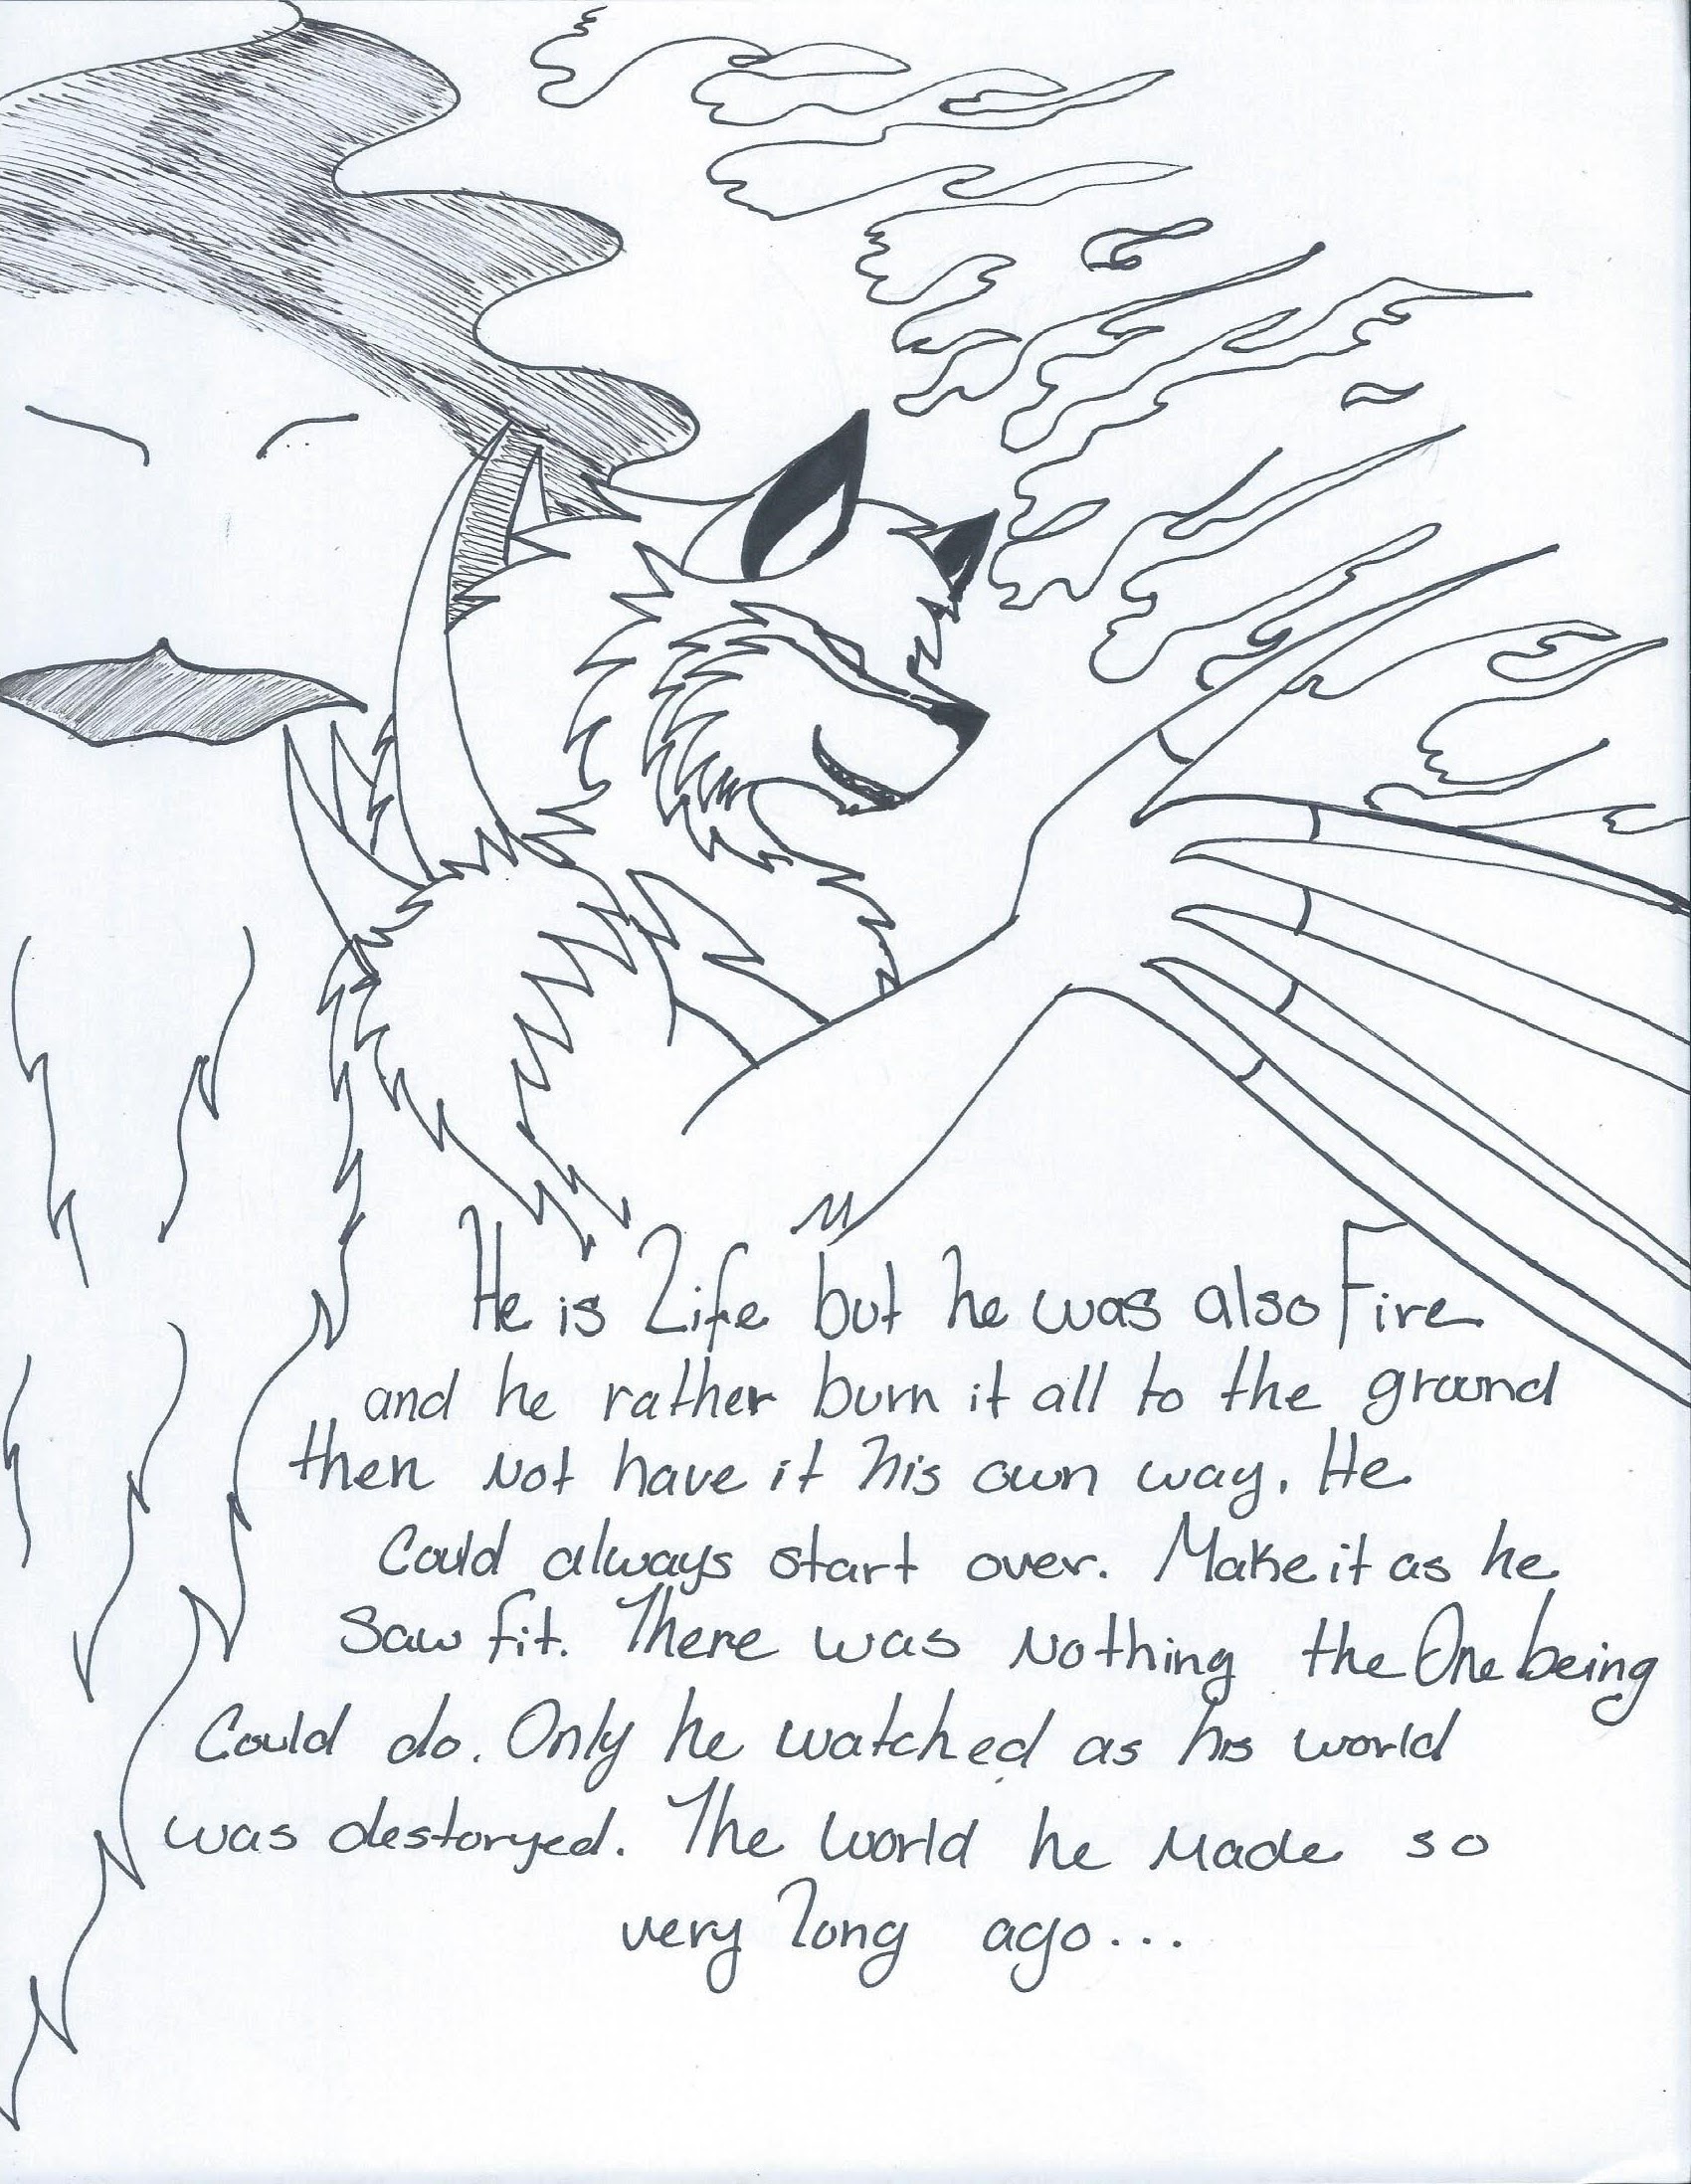 He is Life but he was also Fire
and he rather burn it all to the ground
then Not have it his own way. He
Could always start over. Make it as he
Saw fit. There was Nothing the One being
Could do. Only he watched as his world
was destoryed. The world he Made so
very long ago...